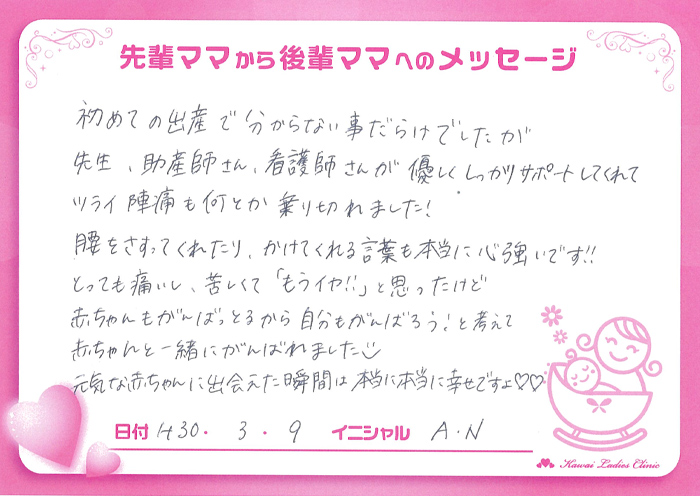 先輩ママから後輩ママへのメッセージ
初めての出産で分からない事だらけでしたが
先生、助産師さん、看護師さんが優しくしっかりサポートしてくれて
ツライ陣痛も何とか乗り切れました!
腰をさすってくれたり、かけてくれる言葉も本当に心強いです!!
とっても痛いし、苦しくて「もうイヤ!!」と思ったけど
赤ちゃんもがんばっとるから自分もがんばろう!と考えて
赤ちゃんと一緒にがんばれました
元気な赤ちゃんに出会えた瞬間は本当に本当に幸せですよ♡♡
日付 H30・3・9 イニシャル A.N
Kawai Ladies Clinic